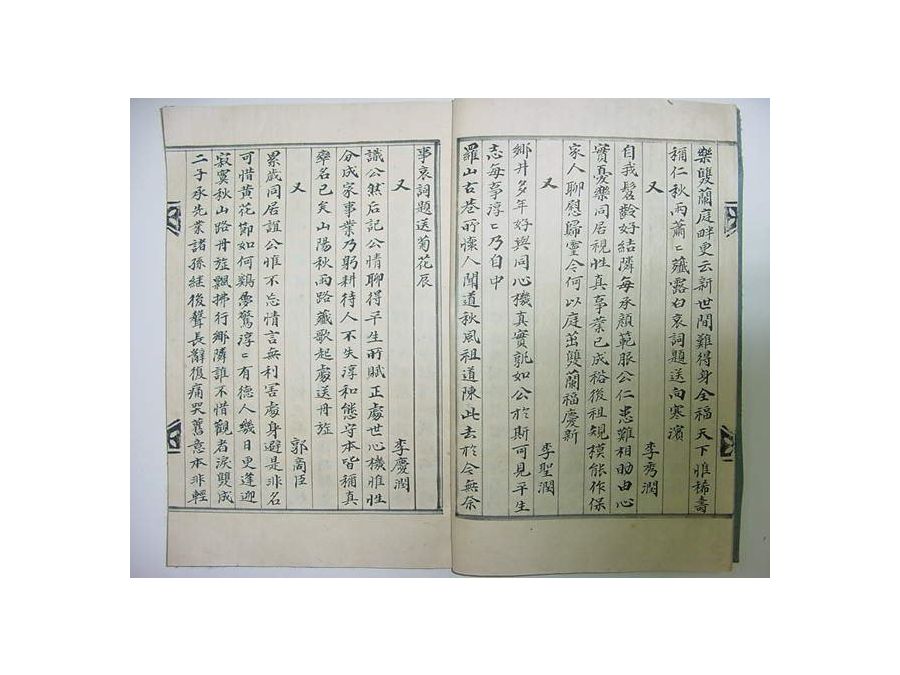 樂雙蘭庭畔更云新世間難得身全福天下惟稀壽
稱仁秋雨蕭〻薤露白哀詞題送向寒濱
又 李秀潤
自我髫齡好結隣每承顔範服公仁患難相助由心
實憂樂同居視性真事業已成裕後祖規模能作保
家人聊慰歸靈令何以庭茁雙蘭福慶新
又 李聖潤
鄉井多年好與同心機真實孰如公於斯可見平生
志每事淳〻乃自中
羅山古巷所懷人聞道秋風祖道陳此去於今無奈
事哀詞題送菊花辰
又 李慶潤
識公然后記公情聊得平生所賦正處世心機惟性
分成家事業乃躬耕待人不失淳和態守本皆稱真
率名已矣山陽秋雨路薤歌起處送丹旌
又 郭商臣
累歲同居誼公惟不忘情言無利害處身避是非名
可惜黃花節如何鷄夢驚淳〻有德人幾日更逢迎
寂寞秋山路丹旌飄拂行鄉隣誰不惜觀者淚雙成
二子承先業諸孫繼後聲長辭復痛哭舊意本非輕